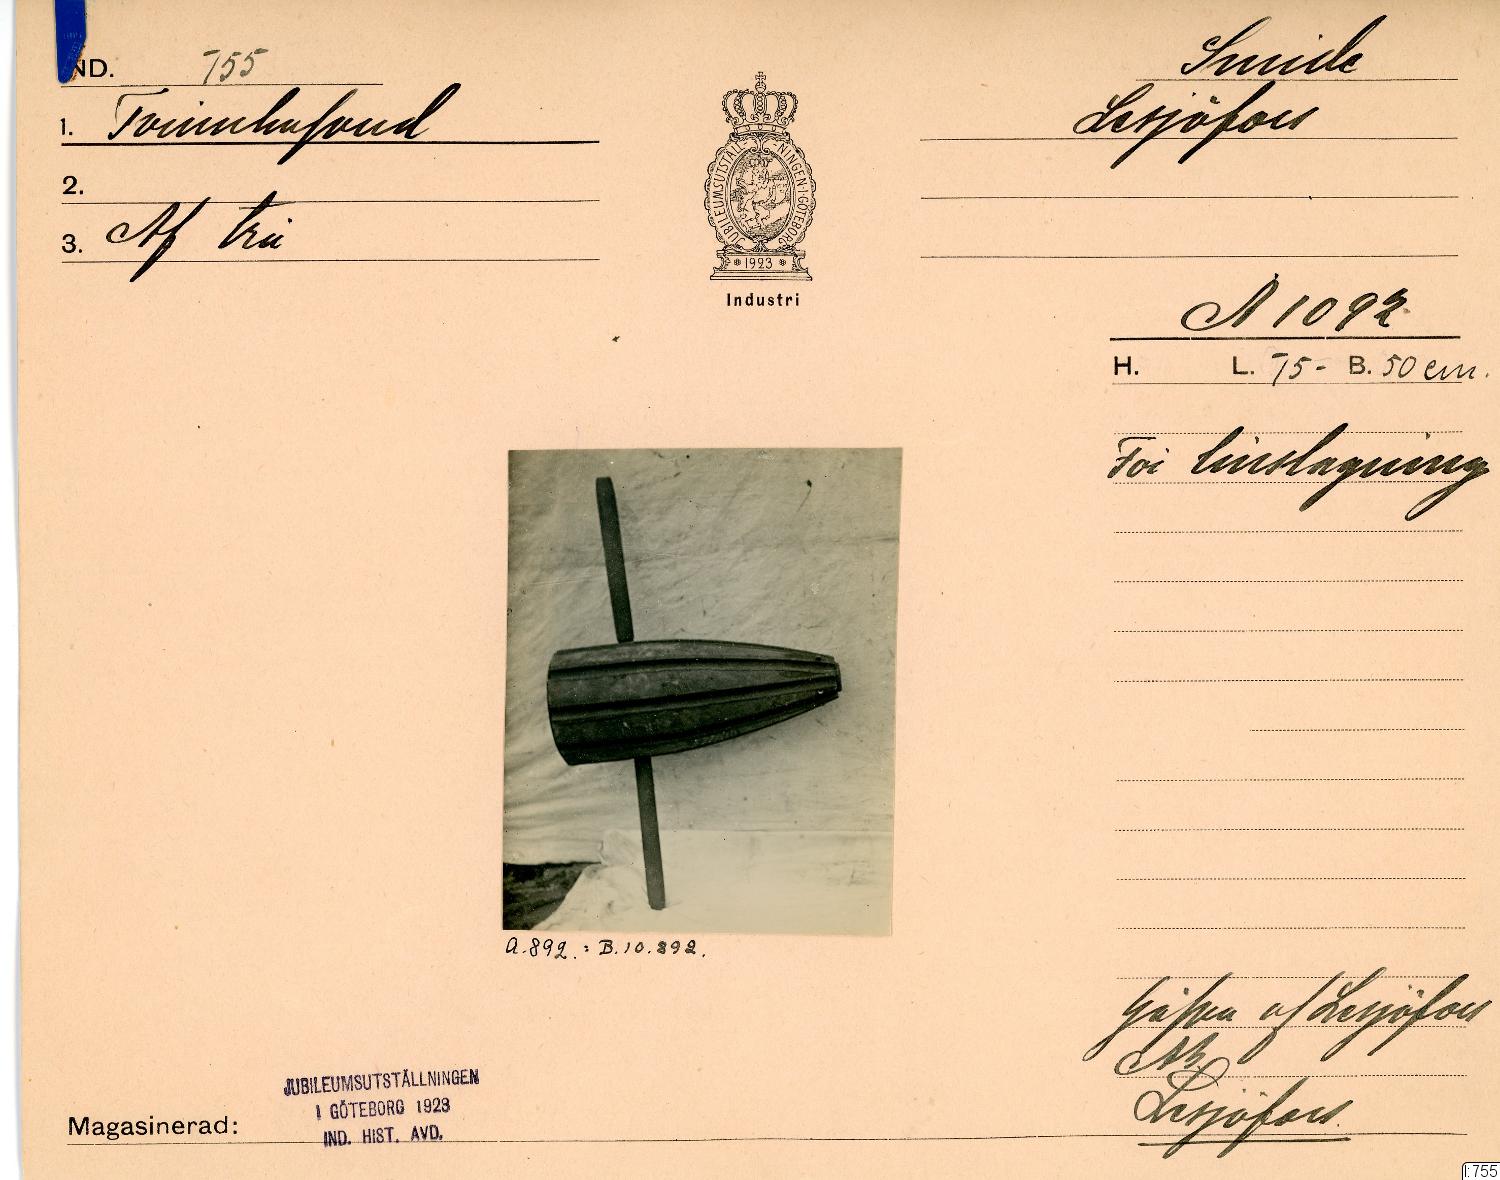 IND. 755
1. Trimhufvud
2.
3. Af trä
JUBILEUMSUTSTÄLLNINGEN I GÖTEBORG
1923
Industri
Smide
Lesjöfors
A 1092
H. L. 75- B. 50 cm.
För linslagning
A.892.: B.10.892.
Gåfva af Lesjöfors
AB.
Lesjöfors
JUBILEUMSUTSTÄLLNINGEN
I GÖTEBORG 1923
IND. HIST. AVD.
Magasinerad:
I:755